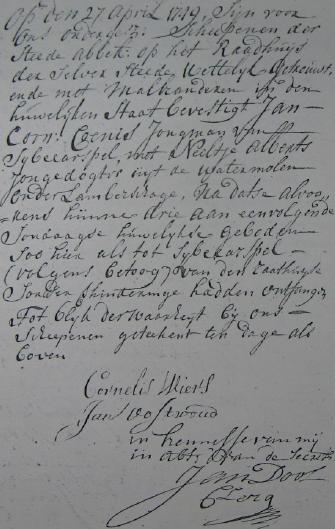 Op den 27 April 1749,, Sijn voor
ons ondergesz: Scheepenen der
Steede Abbek: op het Raadhuijs
der Selver Steede Wettelijk Getrouwt,
ende met Malkanderen in den
huwelijken Staat bevestigt Jan
Corn: Coenis Jongman van
Sybecarspel, met Neeltje Alberts
Jongedogter uijt de Watermolen
onder Lambertschage, Na dat se alvoo,,
=rens hunne drie aan eenvolgende
Sondaagse huwelijkse gebeden
Soo hier als tot Sybecarspel
(volgens betoog) van den Raathuijse
Sonder Verhinderinge hadden ontfangen
Tot blijk der waarheijt bij ons
Scheepenen geteekent ten dage als
boven
Cornelis Miers
Jan
in kennesse van mij
in abt: van de Secrets
Jan Doos
Clercq